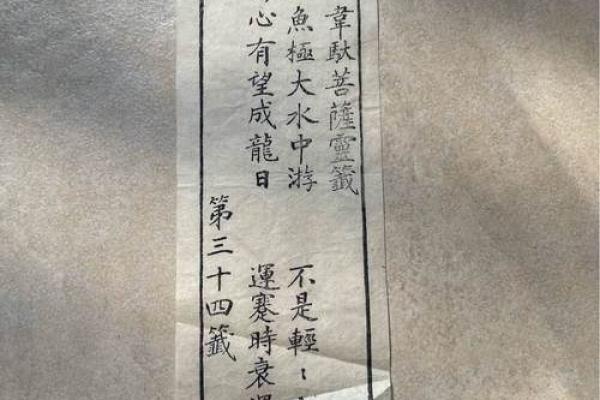 韋馱菩薩靈籤
魚極大水中游　不是輕〻
心有望成龍日　運蹇時衰
第三十四籤